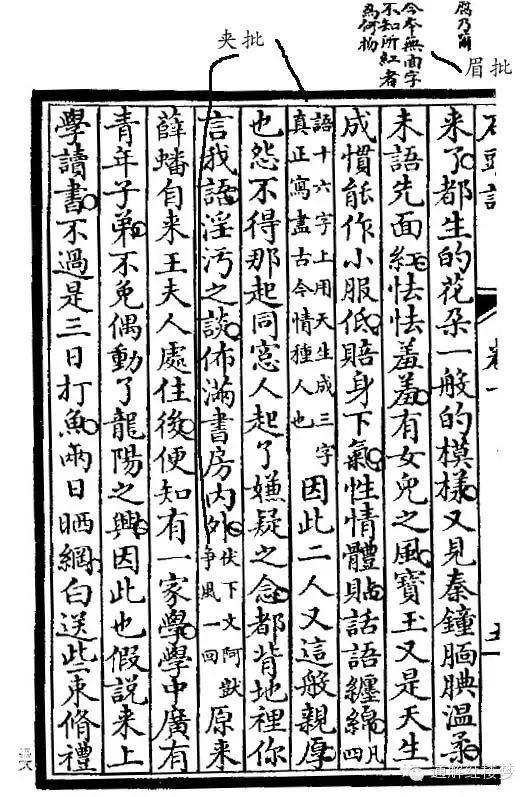 乃爾
今本無面字
不知所紅者
為何物
眉批
夹批
石頭記 卷一
来了都生的花朶一般的模樣又見秦鐘腼腆温柔
未語先面紅怯怯羞羞有女兒之風寶玉又是天生
成慣能作小服低賠身下氣性情體貼話語纏綿凡四
語十六字上用天生成三字
真正寫盡古今情種人也
因此二人又這般親厚
也怨不得那起同窓人起了嫌疑之念都背地裡你
言我語淫污之談佈滿書房内外
伏下文阿獃
争風一回
原来
薛蟠自来王夫人處住後便知有一家學學中廣有
青年子弟不免偶動了龍陽之興因此也假說来上
學讀書不過是三日打魚兩日晒網白送些束脩禮
通解红楼梦